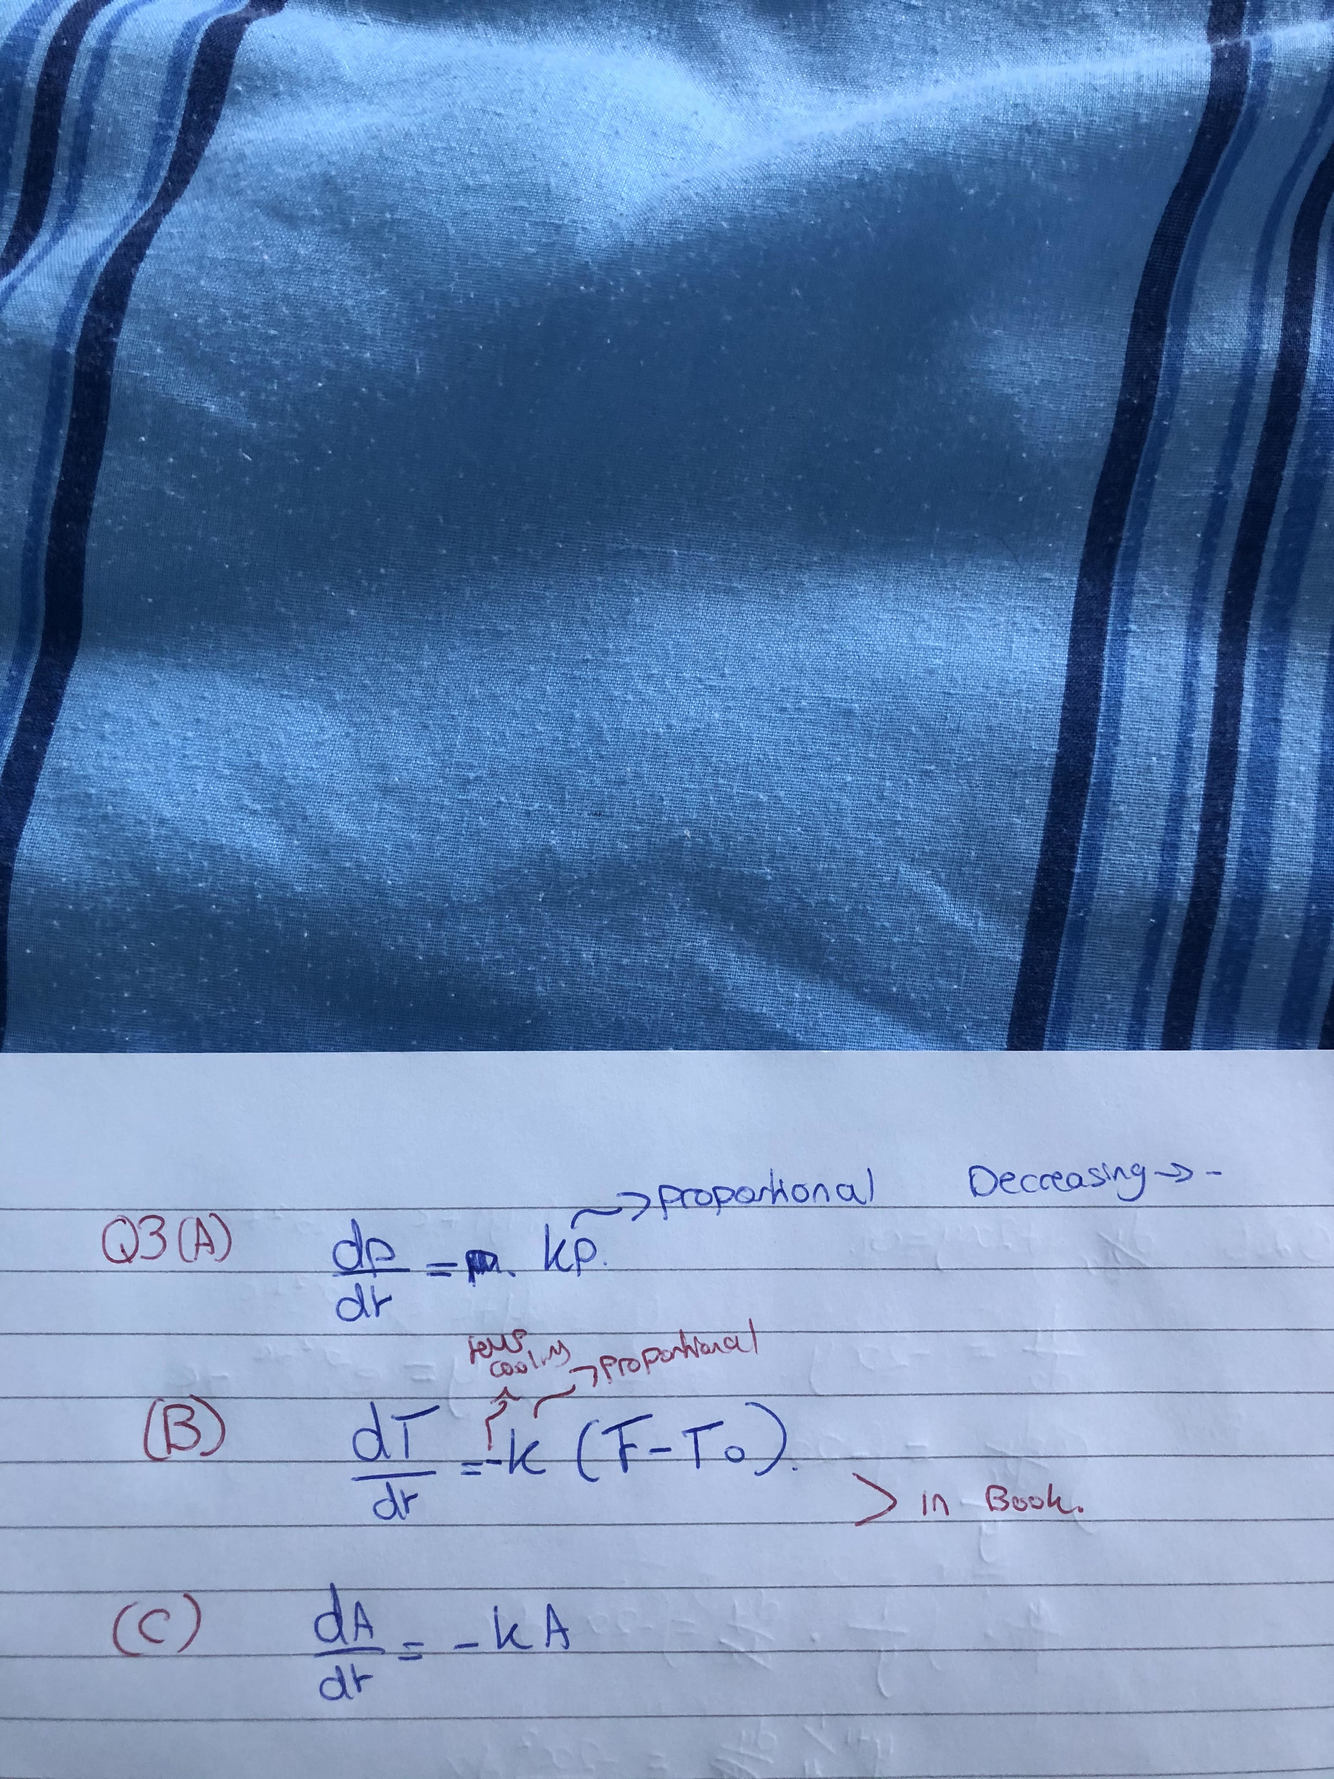 → proportional Decreasing → -
Q3(A) dp/dt = kp.
cooling → proportional
(B) dT/dt = -k (T-T₀).
> in Book.
(C) dA/dt = -kA